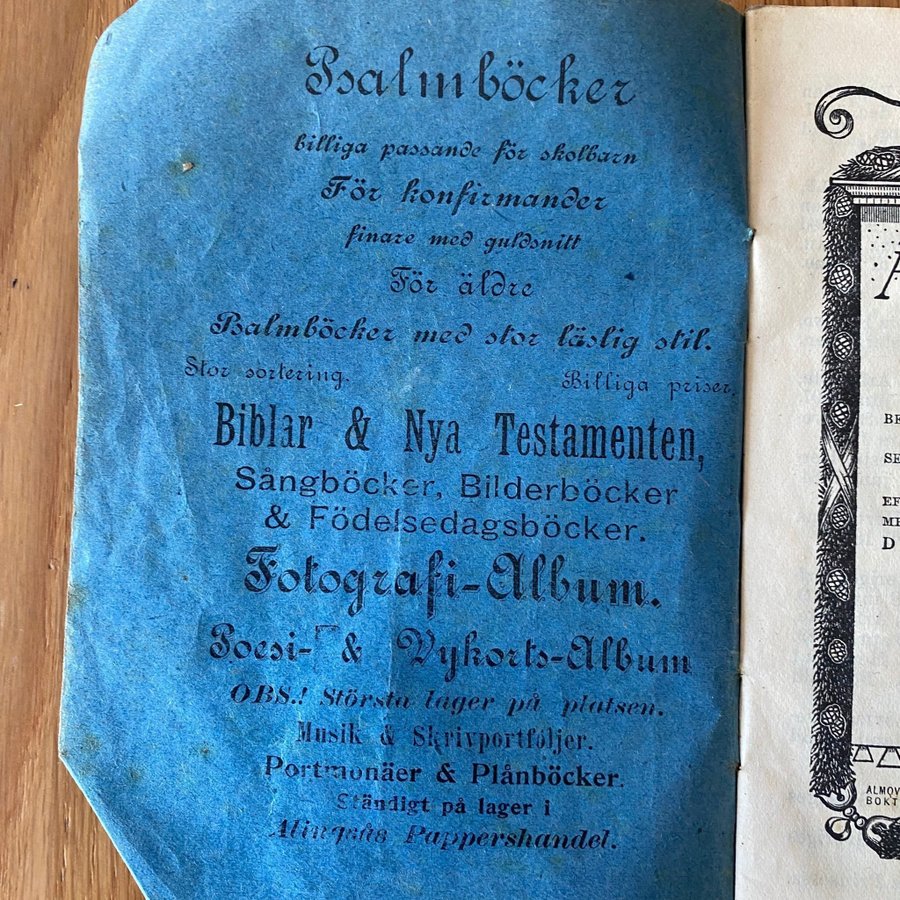 Psalmböcker
billiga passande för skolbarn
För konfirmander
finare med guldsnitt
För äldre
Psalmböcker med stor läslig stil.
Stor sortering. Billiga priser.
Biblar & Nya Testamenten,
Sångböcker, Bilderböcker
& Födelsedagsböcker.
Fotografi-Album.
Poesi- & Vykorts-Album
OBS.! Största lager på platsen.
Musik & Skrivportföljer.
Portmonäer & Plånböcker.
Ständigt på lager i
Alingsås Pappershandel.
A
BE
SE
EF
ME
D
ALMQV
BOKT